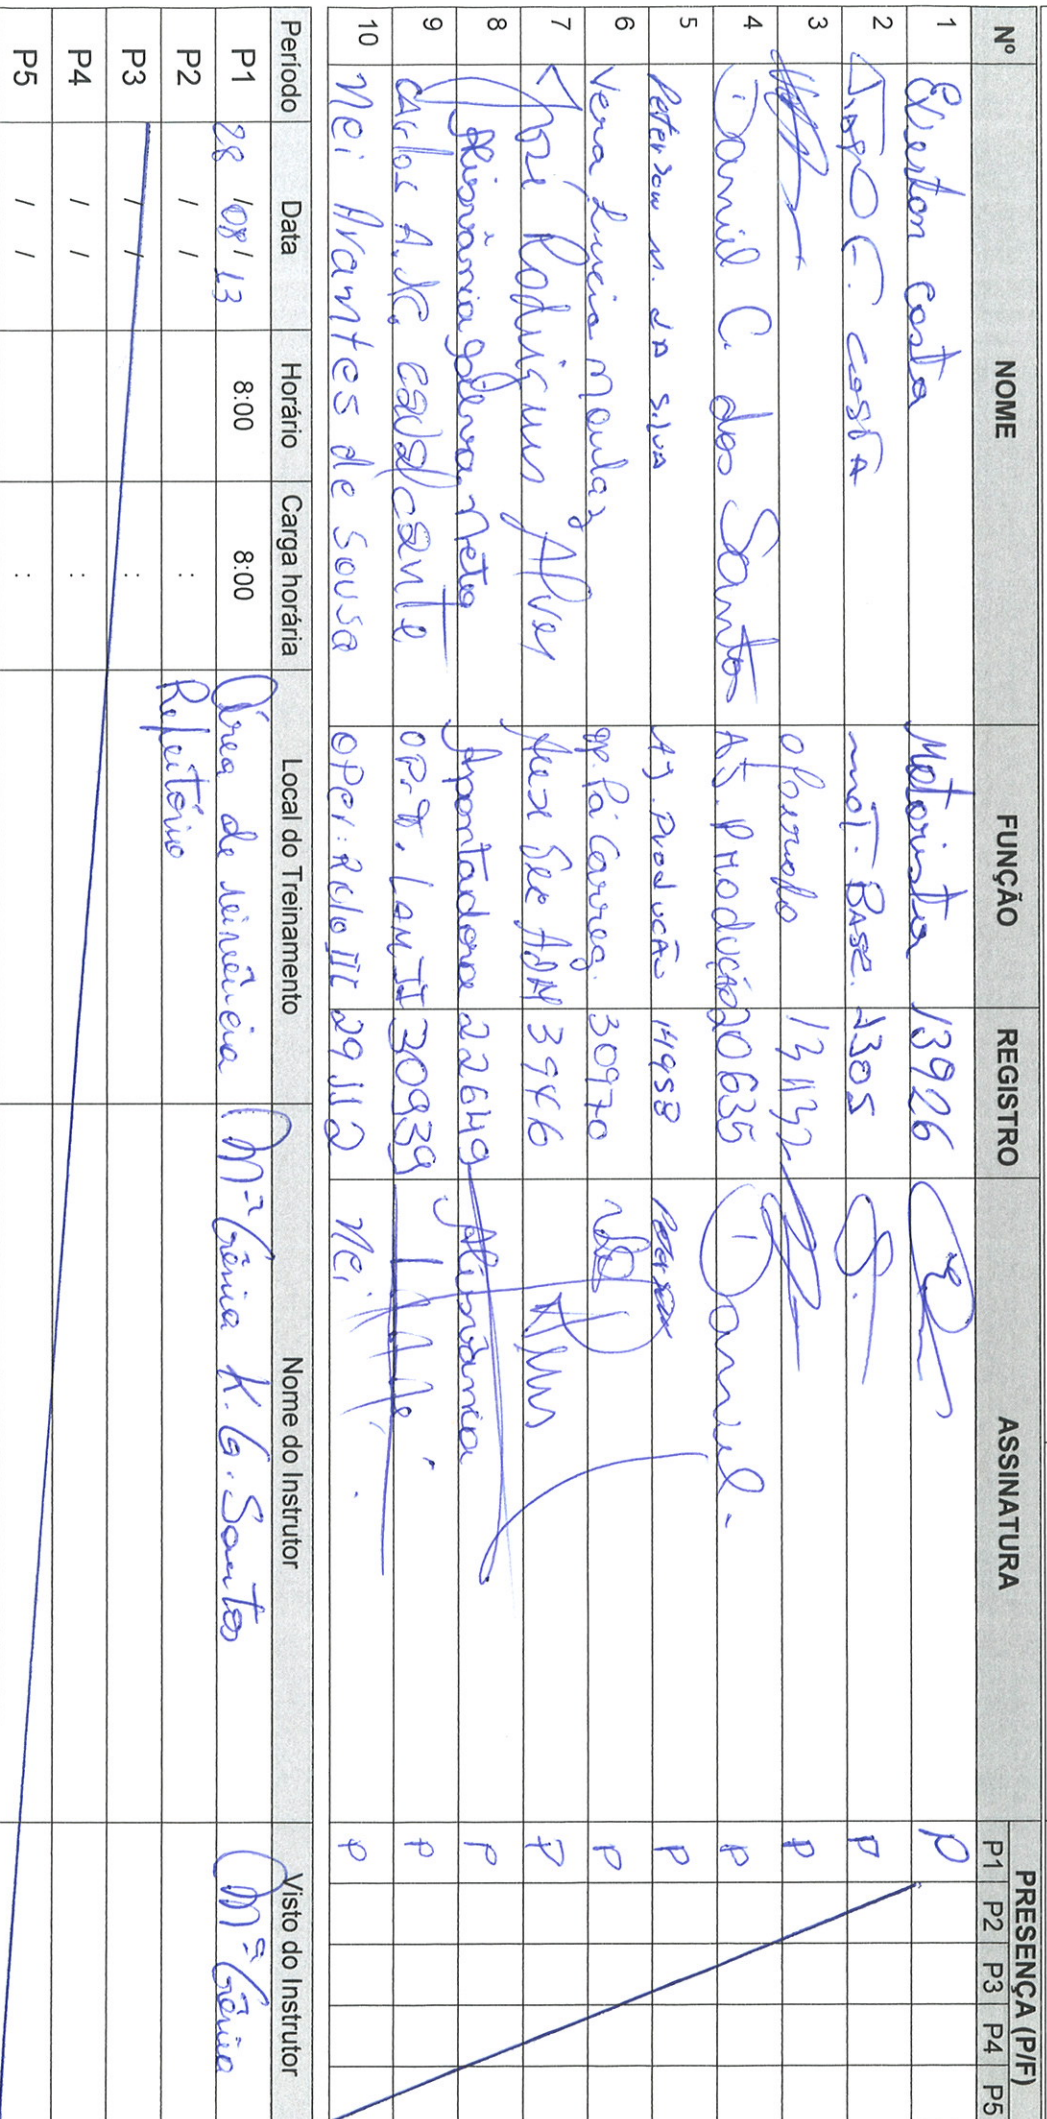 Nº NOME FUNÇÃO REGISTRO ASSINATURA PRESENÇA (P/F)
P1 P2 P3 P4 P5
1 Elverton Costa Motorista 13926 P
2 C. COSTA MOT. BASE. 1305 P
3 P
4 Daniel C. dos Santos AJ. PRODUÇÃO 20635 Daniel P
5 Peterson M. DA SILVA AJ. PRODUÇÃO 14958 Peterson P
6 Vera Lucia Moulaz Op. Pá Carreg. 30970 P
7 José Rodrigues Alves Aux Ser ADM 3946 P
8 Neto Apontadora 22649 P
9 Carlos A. Cavalcante 30939 P
10 Nei Arantes de Sousa OPer. Rolo III 29112 Nei P
Período Data Horário Carga horária Local do Treinamento Nome do Instrutor Visto do Instrutor
P1 28/08/13 8:00 8:00 Área de Mª Gênia K. G. Santos Mª Gênia
P2 / / : Refeitório
P3 / / :
P4 / / :
P5 / / :